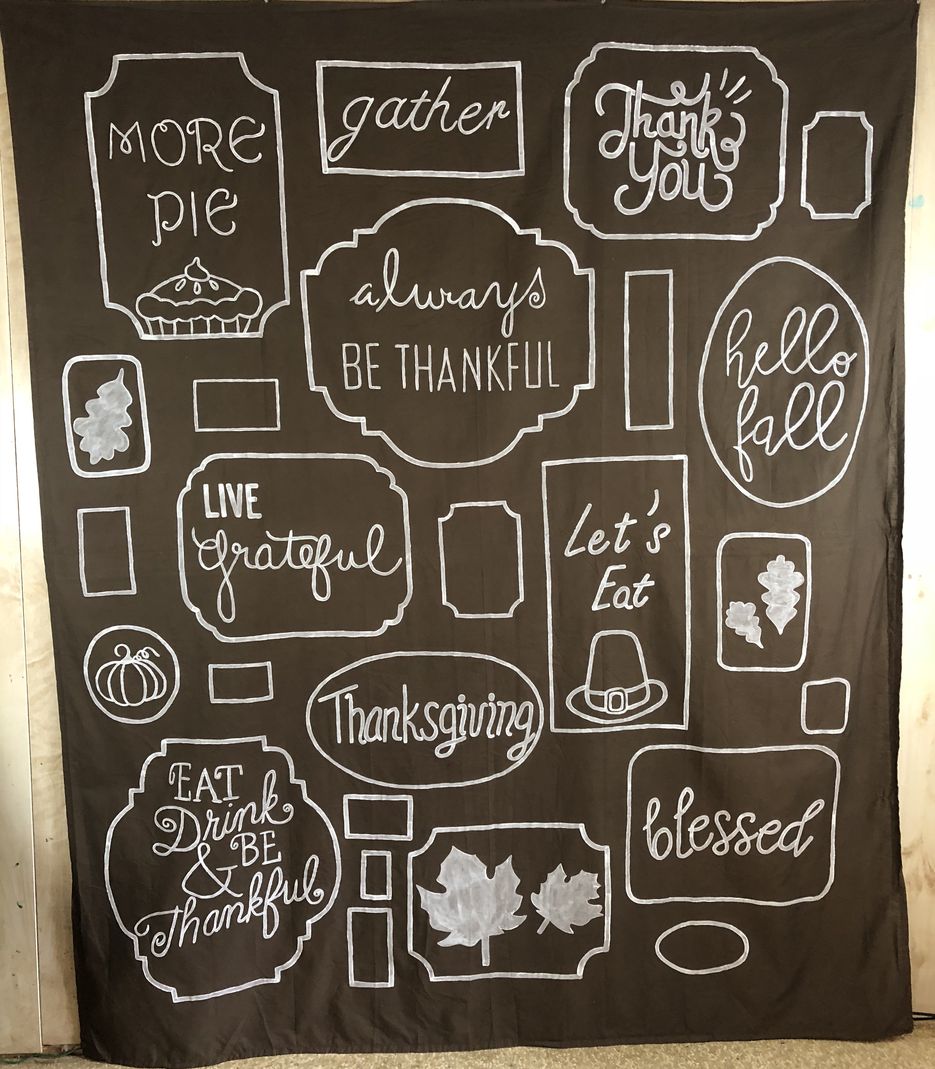 MORE
PIE
gather
Thank
You
always
BE THANKFUL
hello
fall
LIVE
grateful
Let's
Eat
Thanksgiving
EAT
Drink
& BE
Thankful
blessed